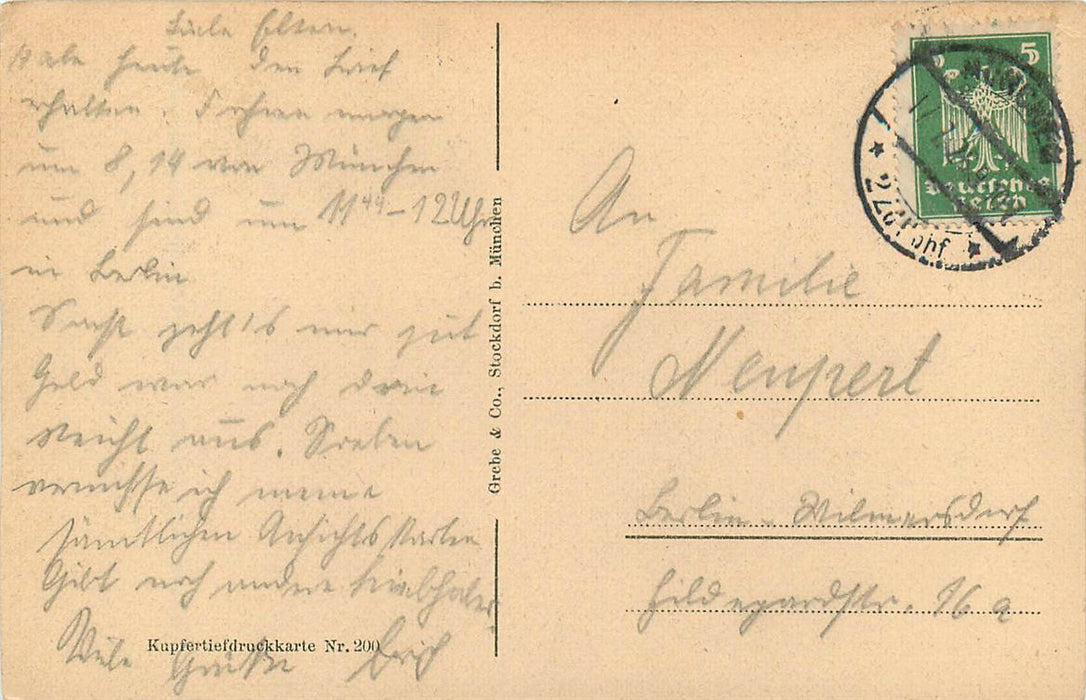 Liebe Eltern.
Habe heute den Brief
erhalten. Fahren morgen
um 8,14 von München
und sind um 11⁴⁴-12 Uhr
in Berlin
Sonst geht's mir gut
Geld war noch
Reicht aus. Soeben
vermisse ich meine
sämtlichen Ansichtskarten
Gibt noch andere Liebhaber
Viele Grüße Erich
Kupfertiefdruckkarte Nr. 200
Grebe & Co., Stockdorf b. München
5 5
Deutsches
Reich
MÜNCHEN
2 BZ Hbhf
An
Familie
Neupert
Berlin-Wilmersdorf
Hildegardstr. 16a